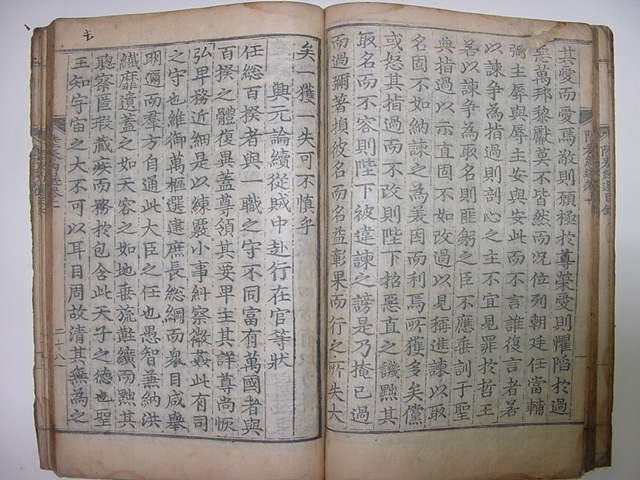 其愛而愛焉敬則願極於尊榮愛則懼陷於過
惡萬邦黎獻莫不皆然而況位列朝廷任當輔
弼主辱與辱主安與安此而不言誰復言者若
以諫爭為指過則剖心之主不宜見罪於哲王
若以諫爭為取名則匪躬之臣不應垂訓于聖
典指過以示直固不如改過以見稱進諫以取
名固不如納諫之為美因而利焉所獲多矣儻
或怒其指過而不改則陛下招惡直之譏黜其
取名而不容則陛下被違諫之謗是乃掩己過
而過彌著損彼名而名益彰果而行之所失大
矣一獲一失可不慎乎
興元論續從賊中赴行在官等狀
任總百揆者與一職之守不同富有萬國者與
百揆之體復異蓋尊領其要卑主其詳尊尚恢
弘卑務近細是以練覈小事糾察微姦此有司
之守也維御萬樞選建庶長總綱而衆目咸舉
明邇而羣方自通此大臣之任也愚智兼納洪
纖靡遺蓋之如天容之如地垂旒黈纊而黜其
聰察匿瑕藏疾而務於包含此天子之德也聖
王知宇宙之大不可以耳目周故清其無為之
二十八